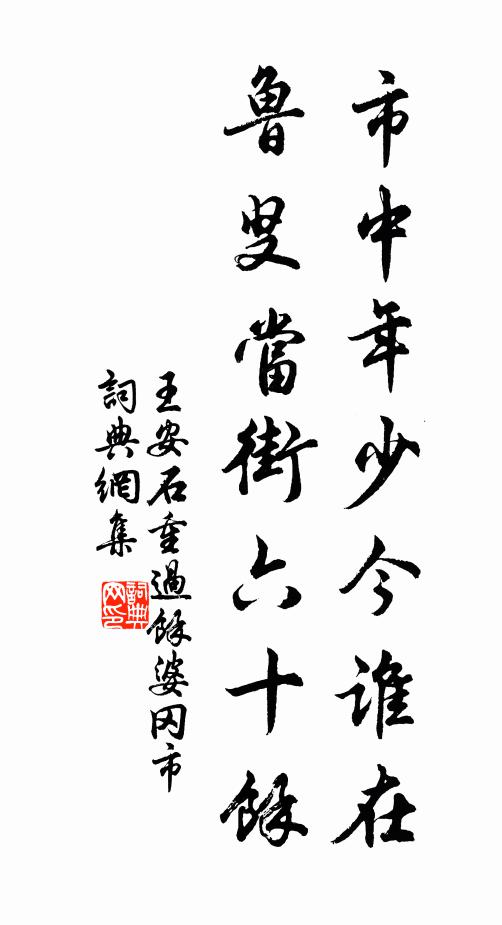 市中年少今誰在
魯叟當街六十餘
王安石重過餘婆冈市
詞典網集
詞典网印